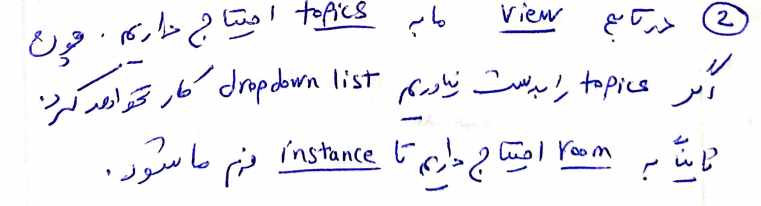 ② در تابع view ما به topics احتیاج داریم. چون
اگر topics را بدست نیاوریم dropdown list کار نخواهد کرد.
ثانیاً به room احتیاج داریم تا instance فرم ما شود.